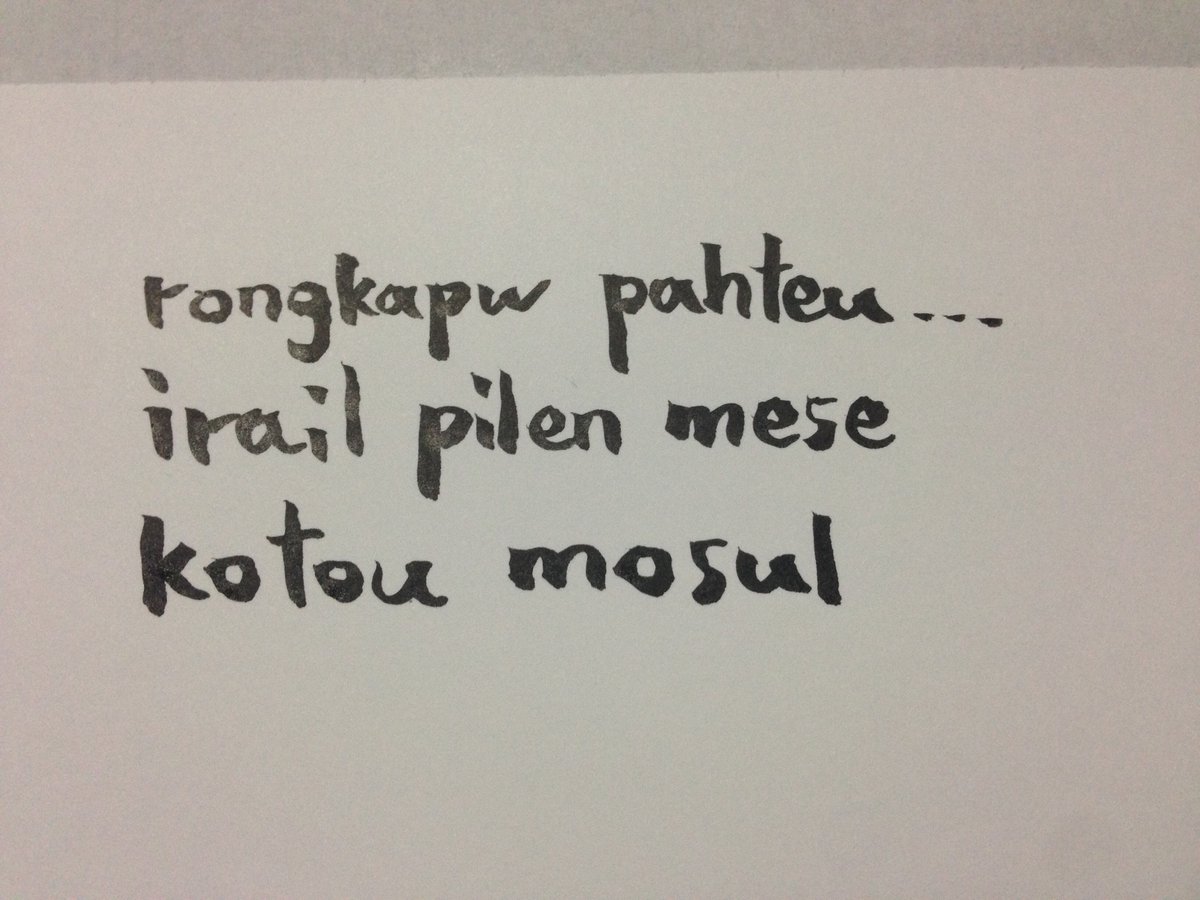 rongkapw pahteu...
irail pilen mese
kotou mosul